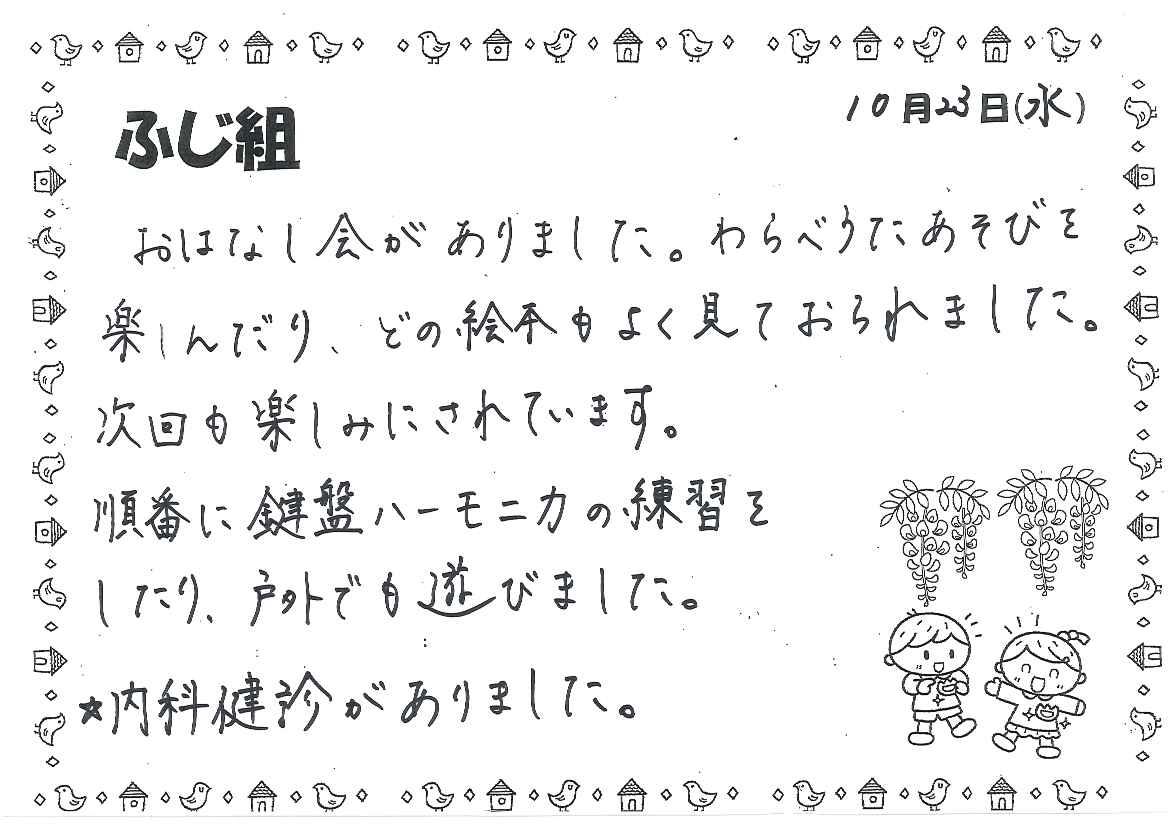 ふじ組
10月23日(水)
おはなし会がありました。わらべうたあそびを
楽しんだり、どの絵本もよく見ておられました。
次回も楽しみにされています。
順番に鍵盤ハーモニカの練習を
したり、戸外でも遊びました。
☆内科健診がありました。